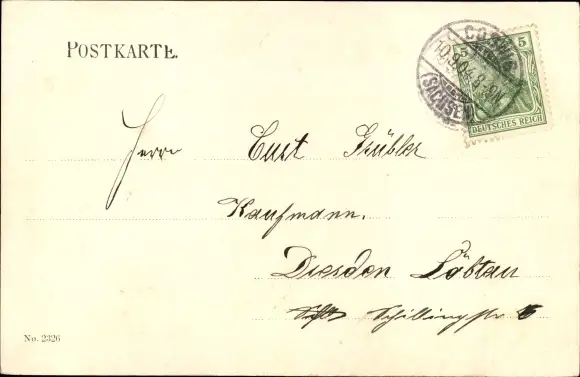 POSTKARTE.
COSWIG
10.9.04.8-9N.
(SACHSEN)
5 5
DEUTSCHES REICH
Herrn Curt Grübler
Kaufmann.
Dresden Löbtau
Schillingstr 6
No. 2326